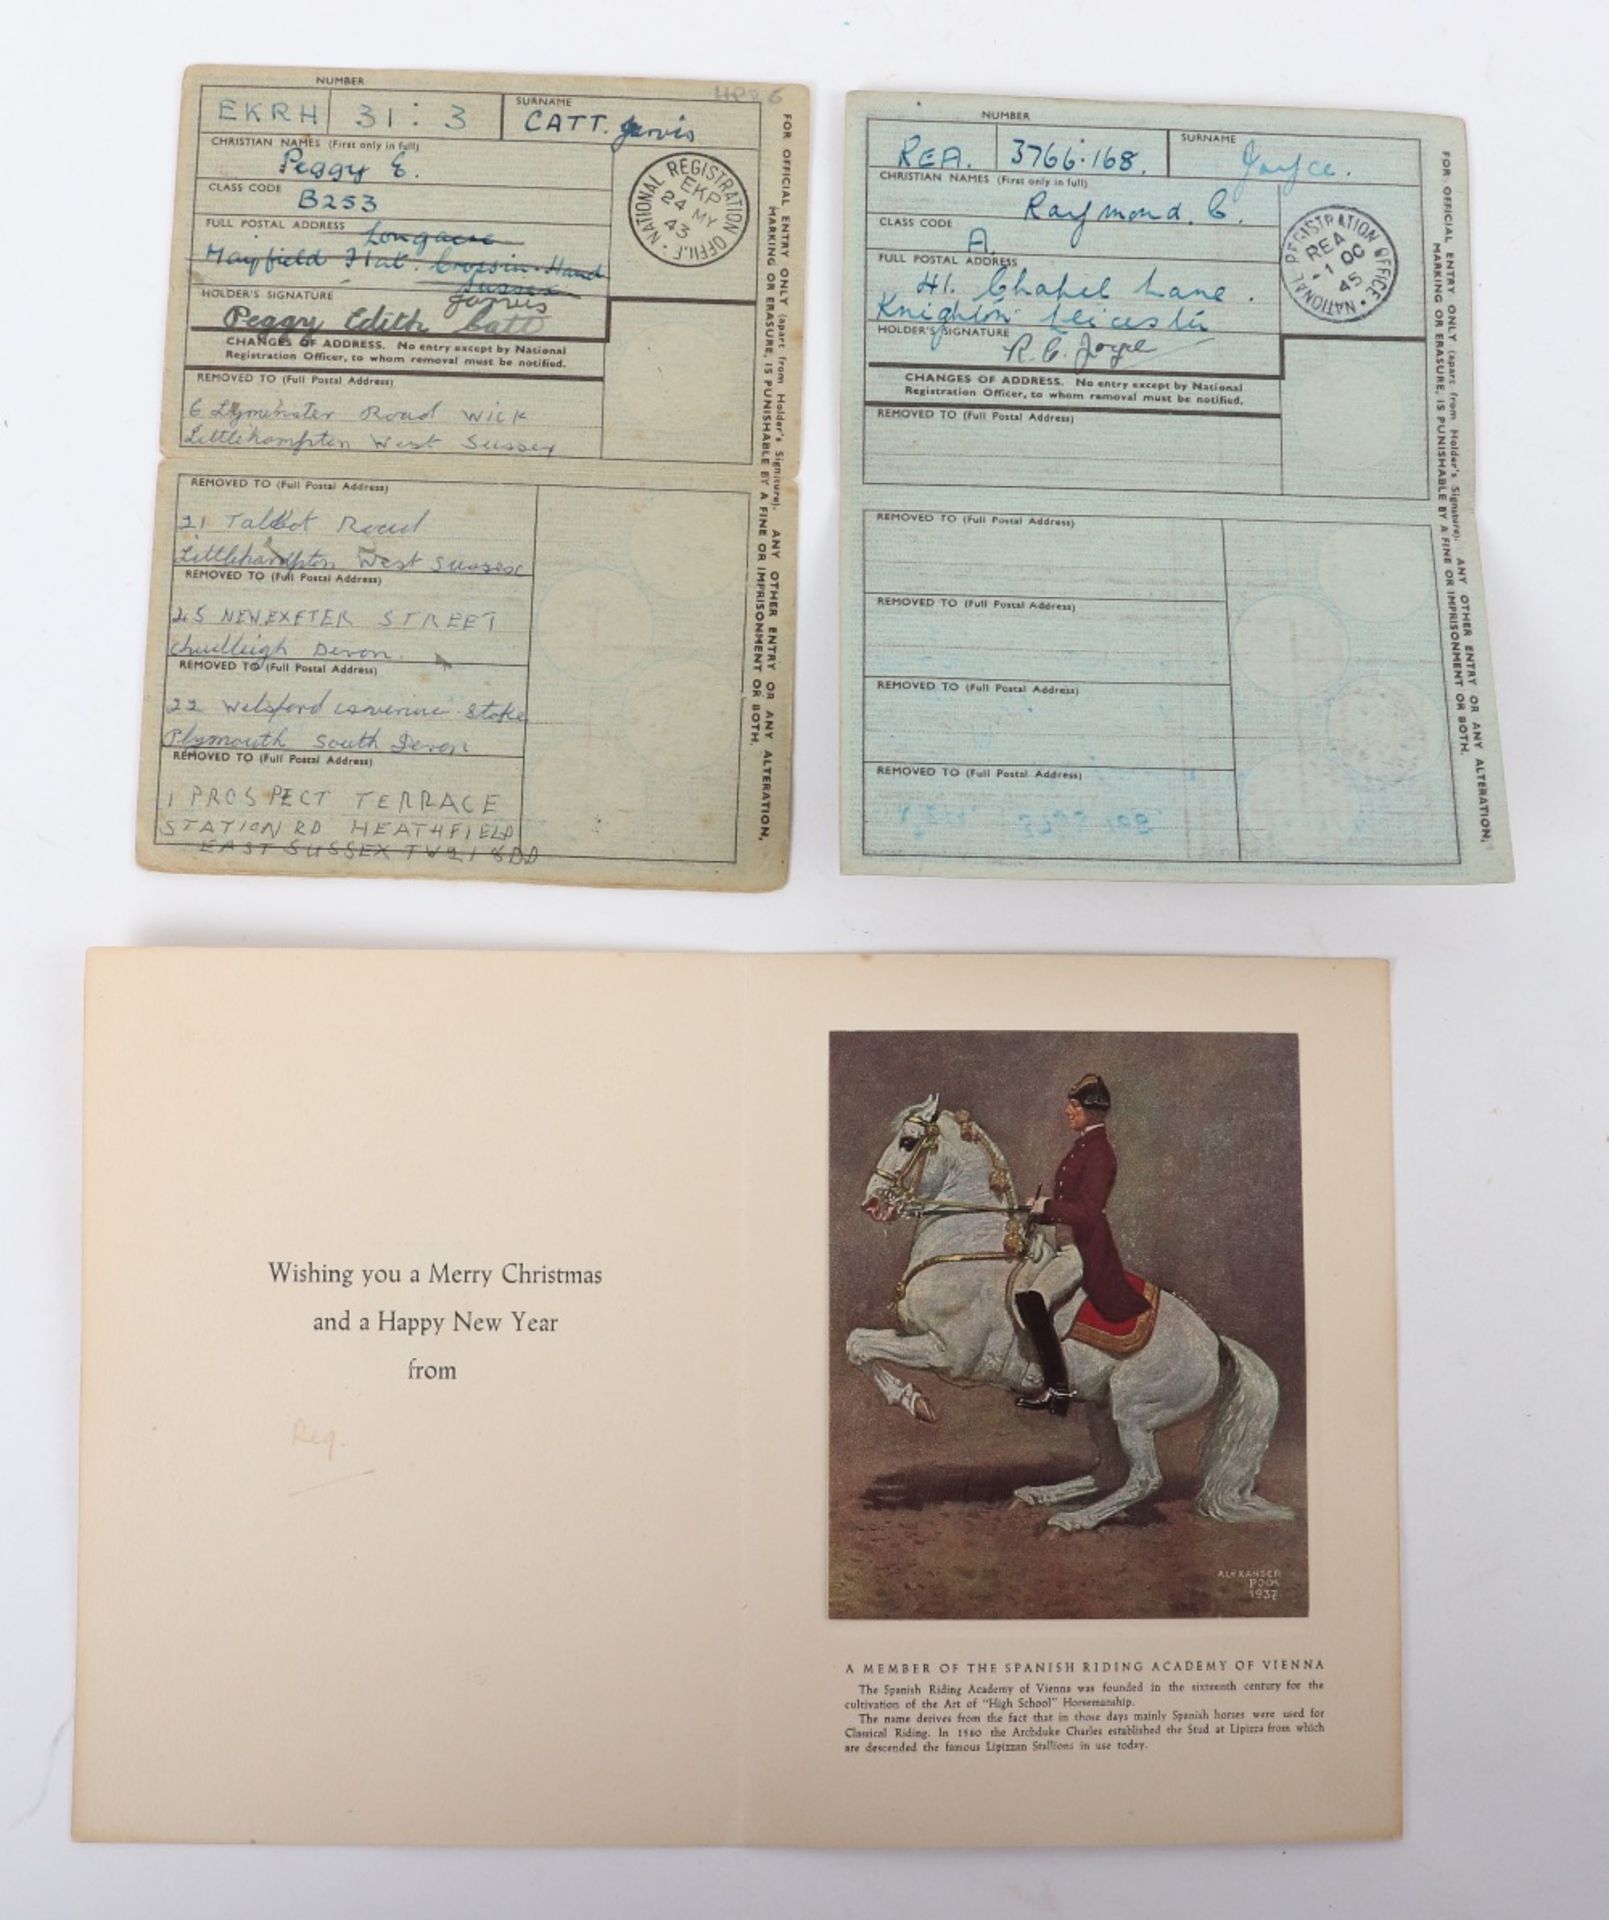 NUMBER
EKRH 31 : 3
SURNAME
CATT. Jarvis
CHRISTIAN NAMES (First only in full)
Peggy E.
CLASS CODE
B253
FULL POSTAL ADDRESS Longacre
Mayfield Flat. Cross-in-Hand
Sussex
HOLDER'S SIGNATURE
Jarvis
Peggy Edith Catt
CHANGES OF ADDRESS. No entry except by National
Registration Officer, to whom removal must be notified.
REMOVED TO (Full Postal Address)
6 Lyminster Road Wick
Littlehampton West Sussex
REMOVED TO (Full Postal Address)
21 Talbot Road
Littlehampton West Sussex
REMOVED TO (Full Postal Address)
25 NEW EXETER STREET
Chudleigh Devon.
REMOVED TO (Full Postal Address)
22 Welsford Stoke
Plymouth South Devon
REMOVED TO (Full Postal Address)
1 PROSPECT TERRACE
STATION RD HEATHFIELD
EAST SUSSEX TN21 8DD
NATIONAL REGISTRATION OFFICE
EKP
24 MY
43
FOR OFFICIAL ENTRY ONLY (apart from Holder's Signature). ANY OTHER ENTRY OR ANY ALTERATION,
MARKING OR ERASURE, IS PUNISHABLE BY A FINE OR IMPRISONMENT OR BOTH.
NUMBER
REA. 3766.168.
SURNAME
Joyce.
CHRISTIAN NAMES (First only in full)
Raymond. C.
CLASS CODE
A.
FULL POSTAL ADDRESS
41. Chapel Lane.
Knighton Leicester
HOLDER'S SIGNATURE
R. C. Joyce
CHANGES OF ADDRESS. No entry except by National
Registration Officer, to whom removal must be notified.
REMOVED TO (Full Postal Address)
REMOVED TO (Full Postal Address)
REMOVED TO (Full Postal Address)
REMOVED TO (Full Postal Address)
REMOVED TO (Full Postal Address)
NATIONAL REGISTRATION OFFICE
REA
-1 OC
45
FOR OFFICIAL ENTRY ONLY (apart from Holder's Signature). ANY OTHER ENTRY OR ANY ALTERATION,
MARKING OR ERASURE, IS PUNISHABLE BY A FINE OR IMPRISONMENT OR BOTH.
Wishing you a Merry Christmas
and a Happy New Year
from
Reg.
ALEXANDER
POCK
1937
A MEMBER OF THE SPANISH RIDING ACADEMY OF VIENNA
The Spanish Riding Academy of Vienna was founded in the sixteenth century for the
cultivation of the Art of "High School" Horsemanship.
The name derives from the fact that in those days mainly Spanish horses were used for
Classical Riding. In 1580 the Archduke Charles established the Stud at Lipizza from which
are descended the famous Lipizzan Stallions in use today.